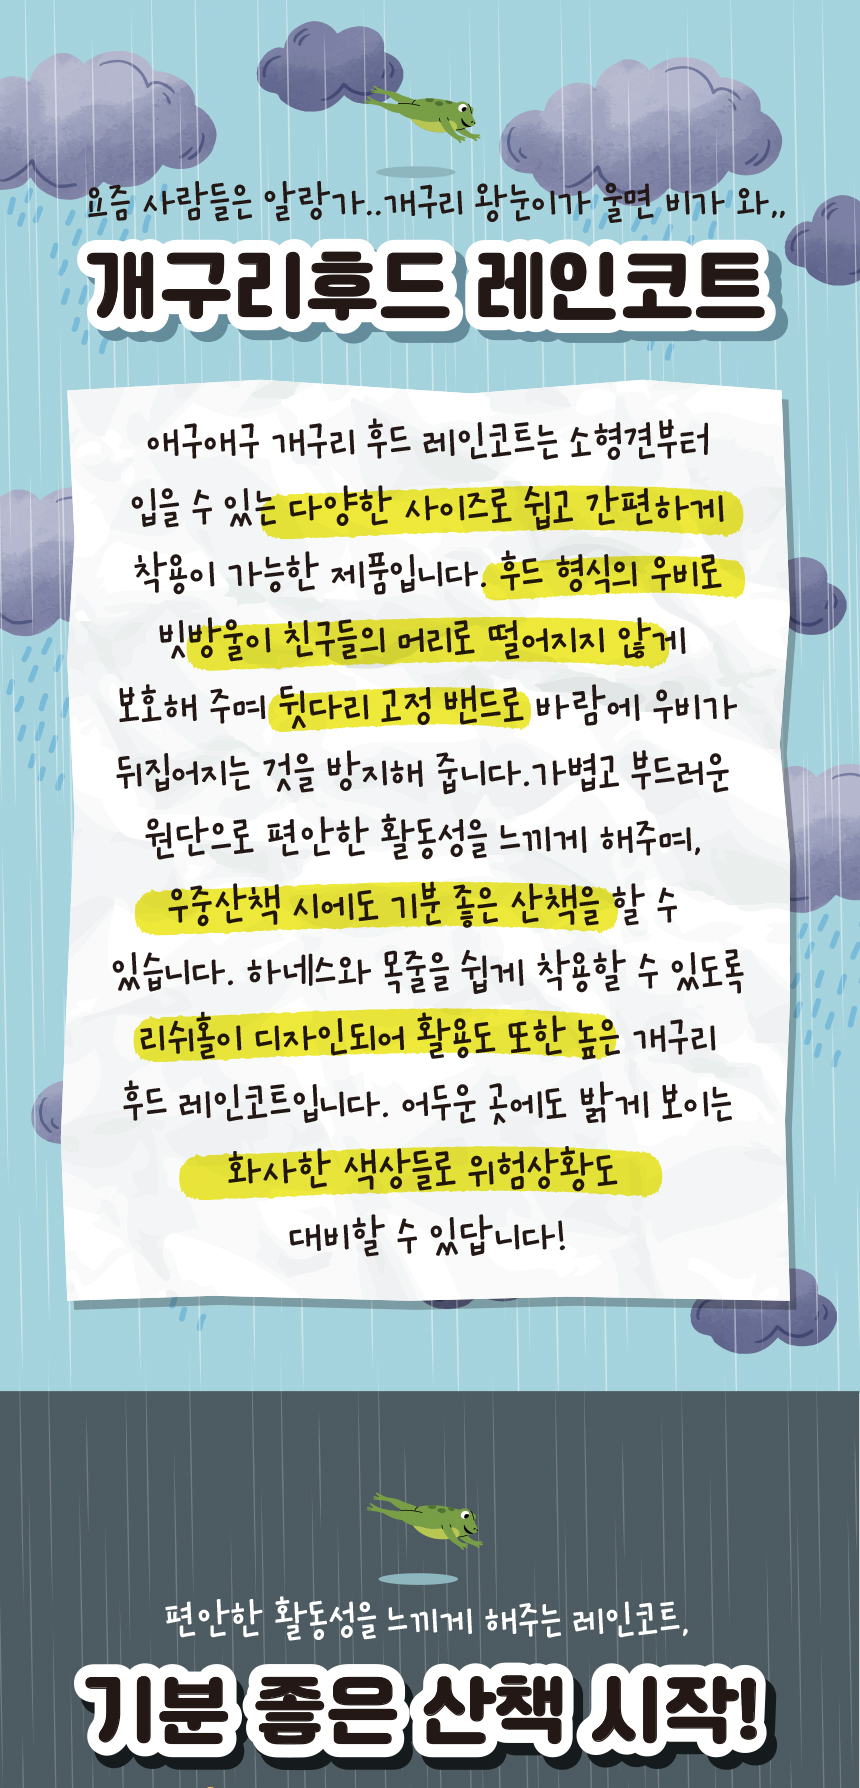 요즘 사람들은 알랑가..개구리 왕눈이가 울면 비가 와,,
개구리후드 레인코트
애구애구 개구리 후드 레인코트는 소형견부터
입을 수 있는 다양한 사이즈로 쉽고 간편하게
착용이 가능한 제품입니다. 후드 형식의 우비로
빗방울이 친구들의 머리로 떨어지지 않게
보호해 주며 뒷다리 고정 밴드로 바람에 우비가
뒤집어지는 것을 방지해 줍니다.가볍고 부드러운
원단으로 편안한 활동성을 느끼게 해주며,
우중산책 시에도 기분 좋은 산책을 할 수
있습니다. 하네스와 목줄을 쉽게 착용할 수 있도록
리쉬홀이 디자인되어 활용도 또한 높은 개구리
후드 레인코트입니다. 어두운 곳에도 밝게 보이는
화사한 색상들로 위험상황도
대비할 수 있답니다!
편안한 활동성을 느끼게 해주는 레인코트,
기분 좋은 산책 시작!